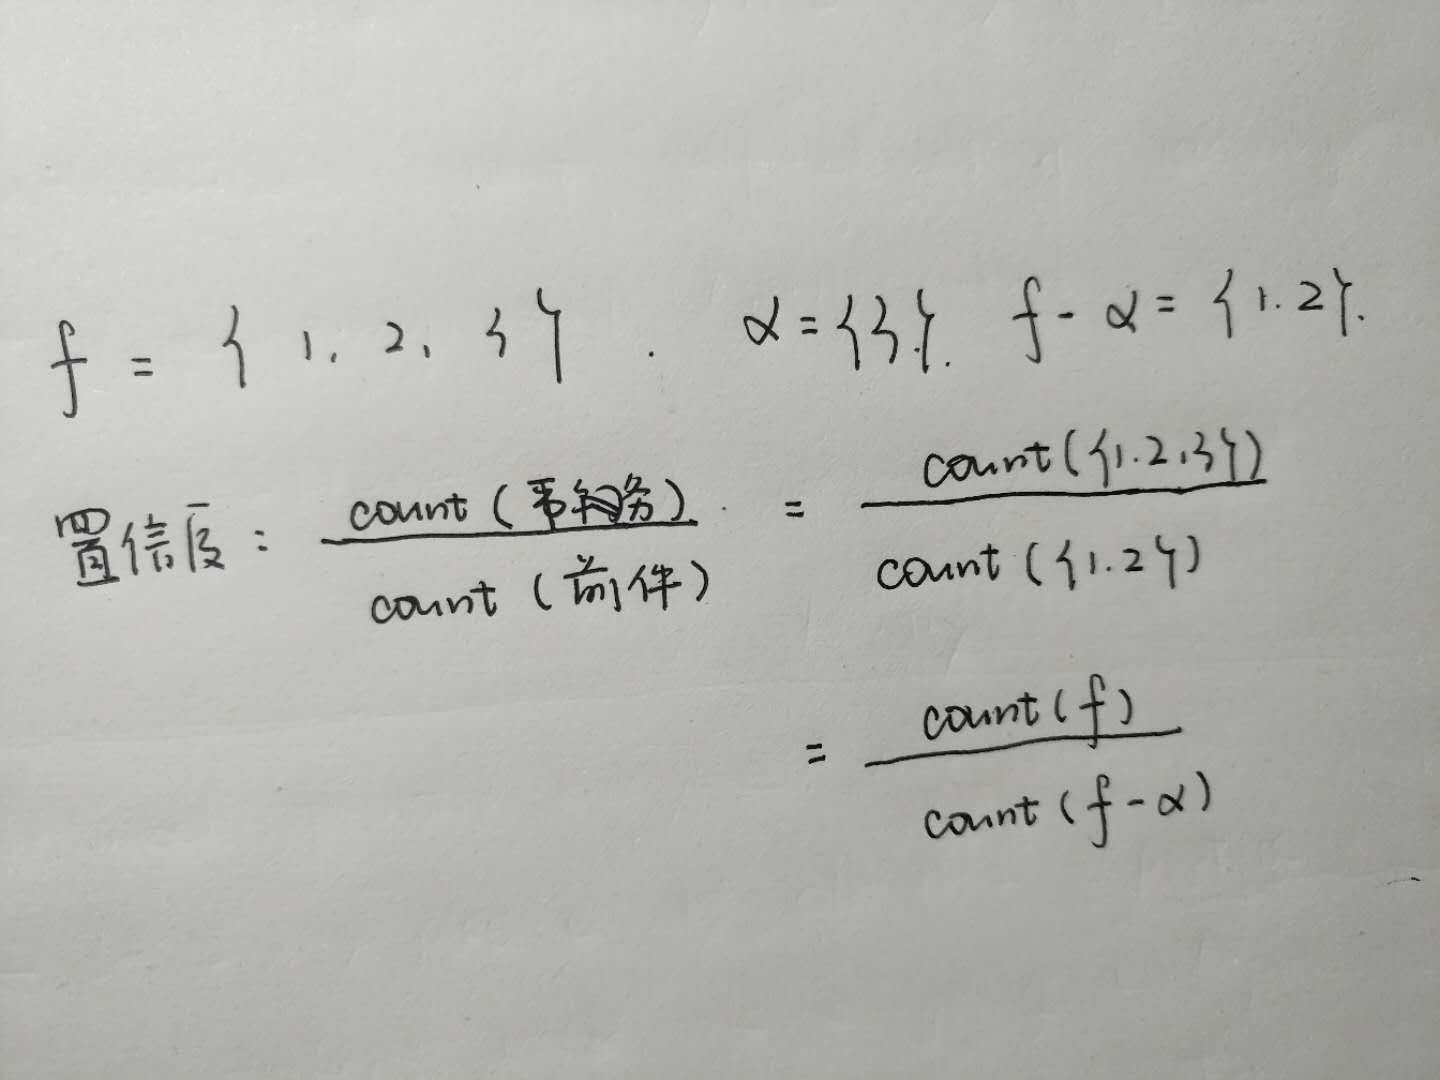 f = {1, 2, 3}. α = {3}. f - α = {1.2}.
置信度: count ( 务) / count (前件) = count ({1.2.3}) / count ({1.2})
= count (f) / count (f - α)